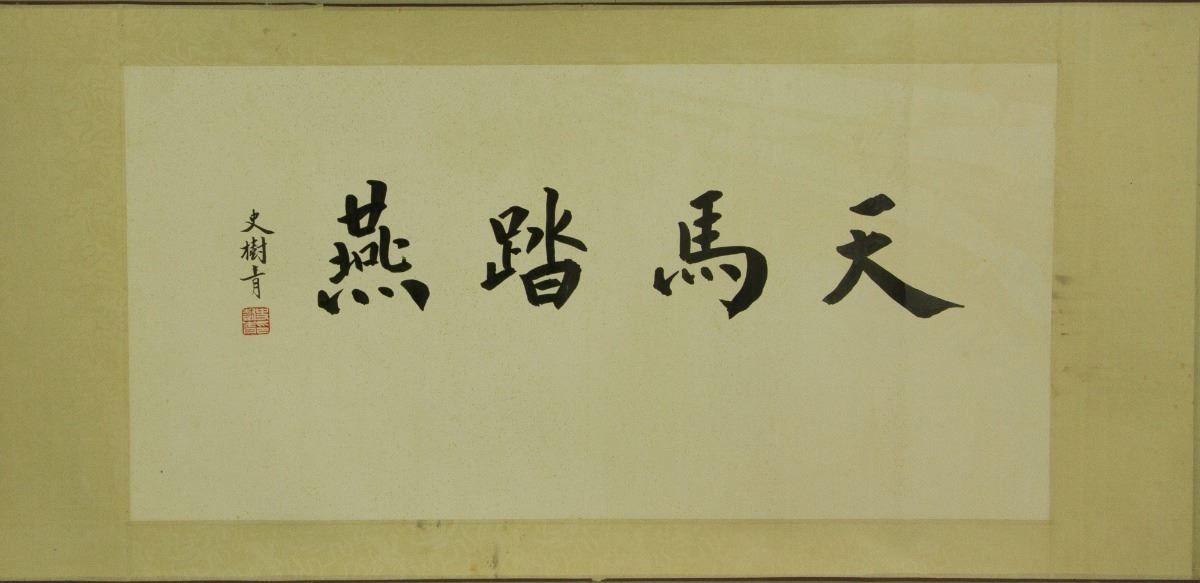 天馬踏燕
史樹青